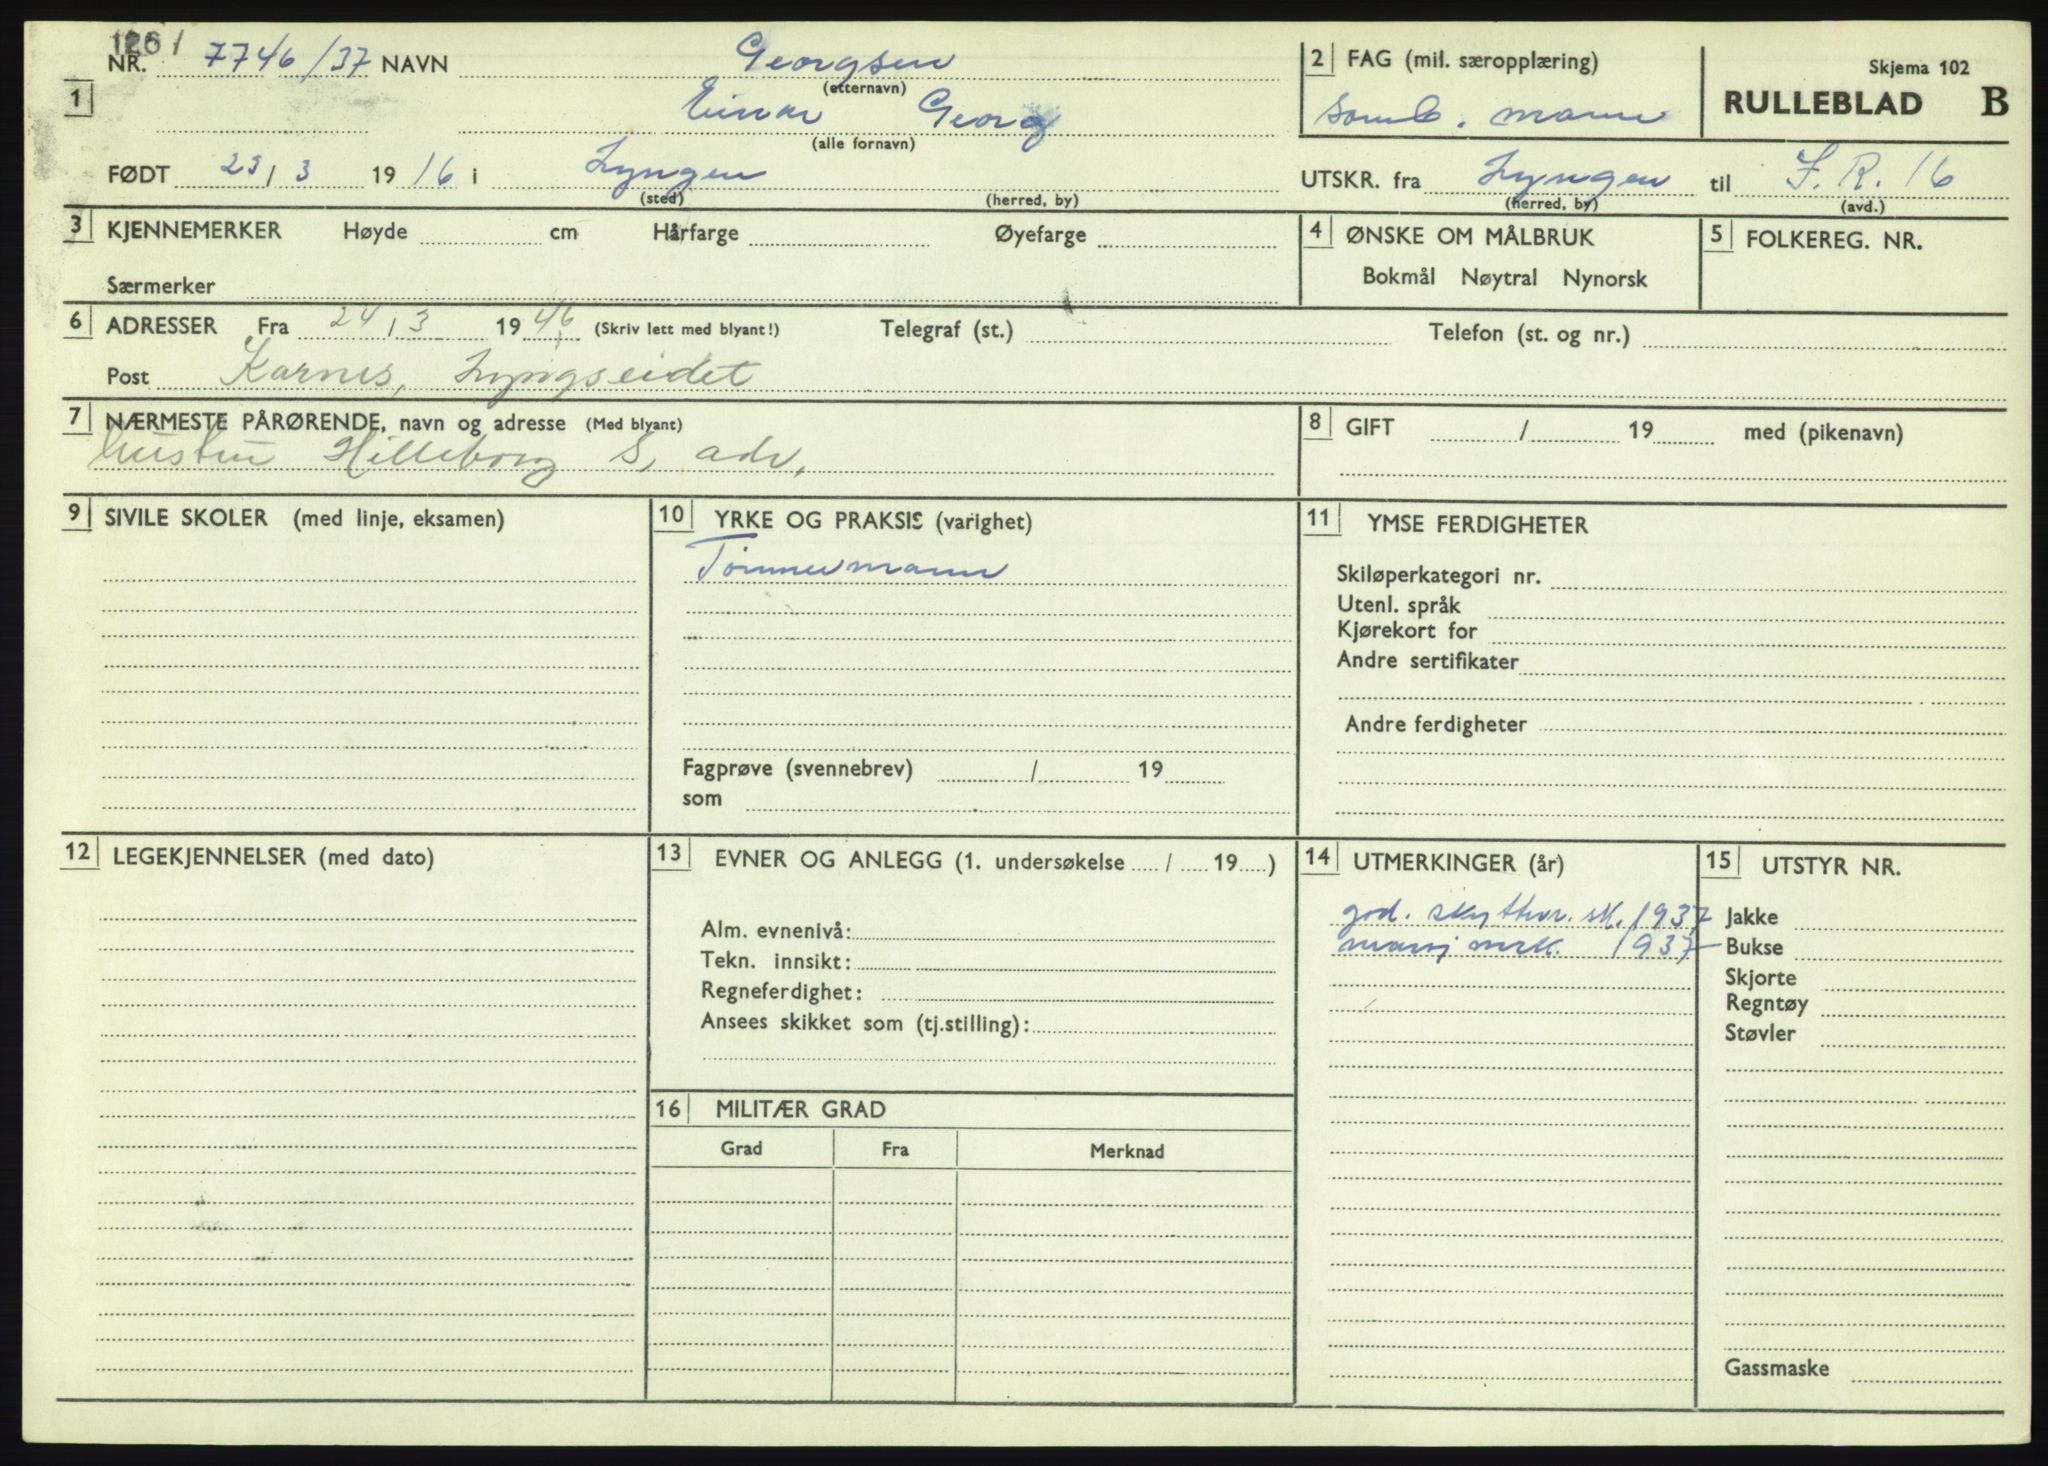 1261
NR. 7746/37 NAVN Georgsen
(etternavn)
1
Einar Georg
(alle fornavn)
FØDT 23/3 1916 i Lyngen
(sted) (herred, by)
2 FAG (mil. særopplæring)
samb. mann
Skjema 102
RULLEBLAD B
UTSKR. fra Lyngen til I.R. 16
(herred, by) (avd.)
3 KJENNEMERKER Høyde cm Hårfarge Øyefarge
Særmerker
4 ØNSKE OM MÅLBRUK
Bokmål Nøytral Nynorsk
5 FOLKEREG. NR.
6 ADRESSER Fra 24/3 1946 (Skriv lett med blyant!) Telegraf (st.) Telefon (st. og nr.)
Post Karnes, Lyngseidet
7 NÆRMESTE PÅRØRENDE, navn og adresse (Med blyant)
hustru Hilleborg S. adr.
8 GIFT / 19 med (pikenavn)
9 SIVILE SKOLER (med linje, eksamen)
10 YRKE OG PRAKSIS (varighet)
Tømmermann
Fagprøve (svennebrev) / 19
som
11 YMSE FERDIGHETER
Skiløperkategori nr.
Utenl. språk
Kjørekort for
Andre sertifikater
Andre ferdigheter
12 LEGEKJENNELSER (med dato)
13 EVNER OG ANLEGG (1. undersøkelse / 19 )
Alm. evnenivå:
Tekn. innsikt:
Regneferdighet:
Ansees skikket som (tj.stilling):
14 UTMERKINGER (år)
god. skytter. sk. 1937
marsj mrk. 1937
15 UTSTYR NR.
Jakke
Bukse
Skjorte
Regntøy
Støvler
Gassmaske
16 MILITÆR GRAD
Grad Fra Merknad